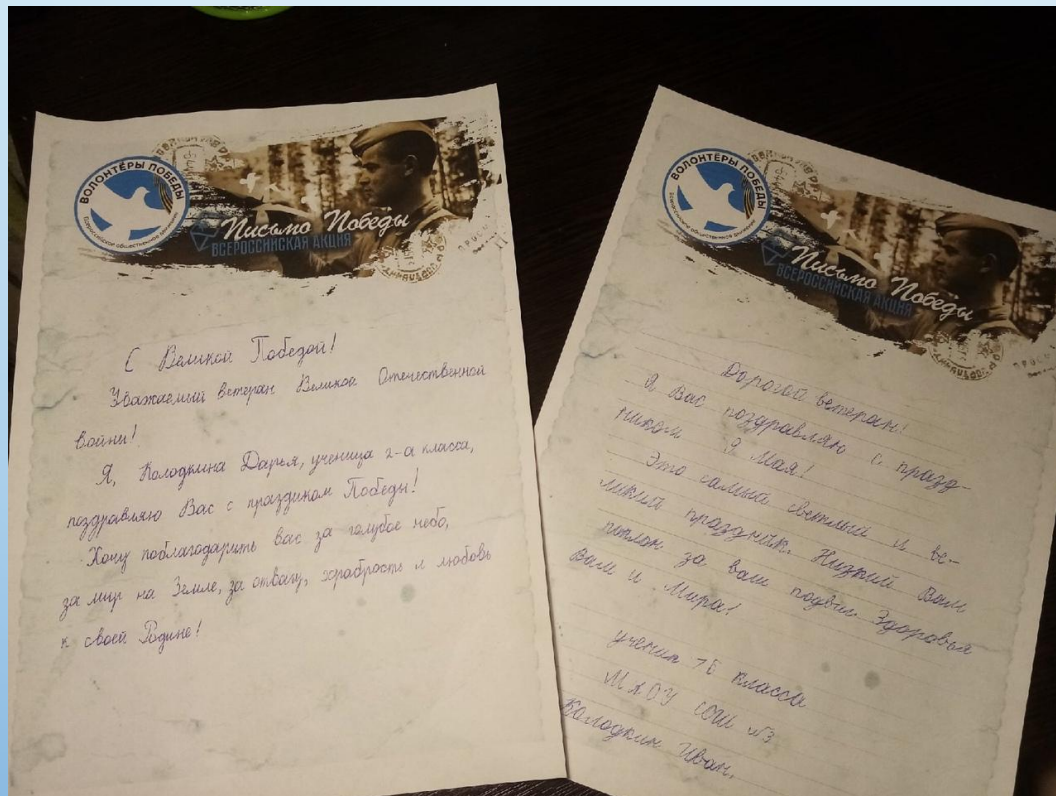 ВОЛОНТЁРЫ ПОБЕДЫ
Всероссийское общественное движение
Письмо Победы
ВСЕРОССИЙСКАЯ АКЦИЯ
С Великой Победой!
Уважаемый ветеран Великой Отечественной
войны!
Я, Колодкина Дарья, ученица 2-а класса,
поздравляю Вас с праздником Победы!
Хочу поблагодарить вас за голубое небо,
за мир на Земле, за отвагу, храбрость и любовь
к своей Родине!
ВОЛОНТЁРЫ ПОБЕДЫ
Всероссийское общественное движение
Письмо Победы
ВСЕРОССИЙСКАЯ АКЦИЯ
Дорогой ветеран!
Я Вас поздравляю с празд-
ником 9 Мая!
Это самый светлый и ве-
ликий праздник. Низкий Вам
поклон за ваш подвиг. Здоровья
Вам и Мира!
ученик 7Б класса
МАОУ СОШ №3
Колодкин Иван.